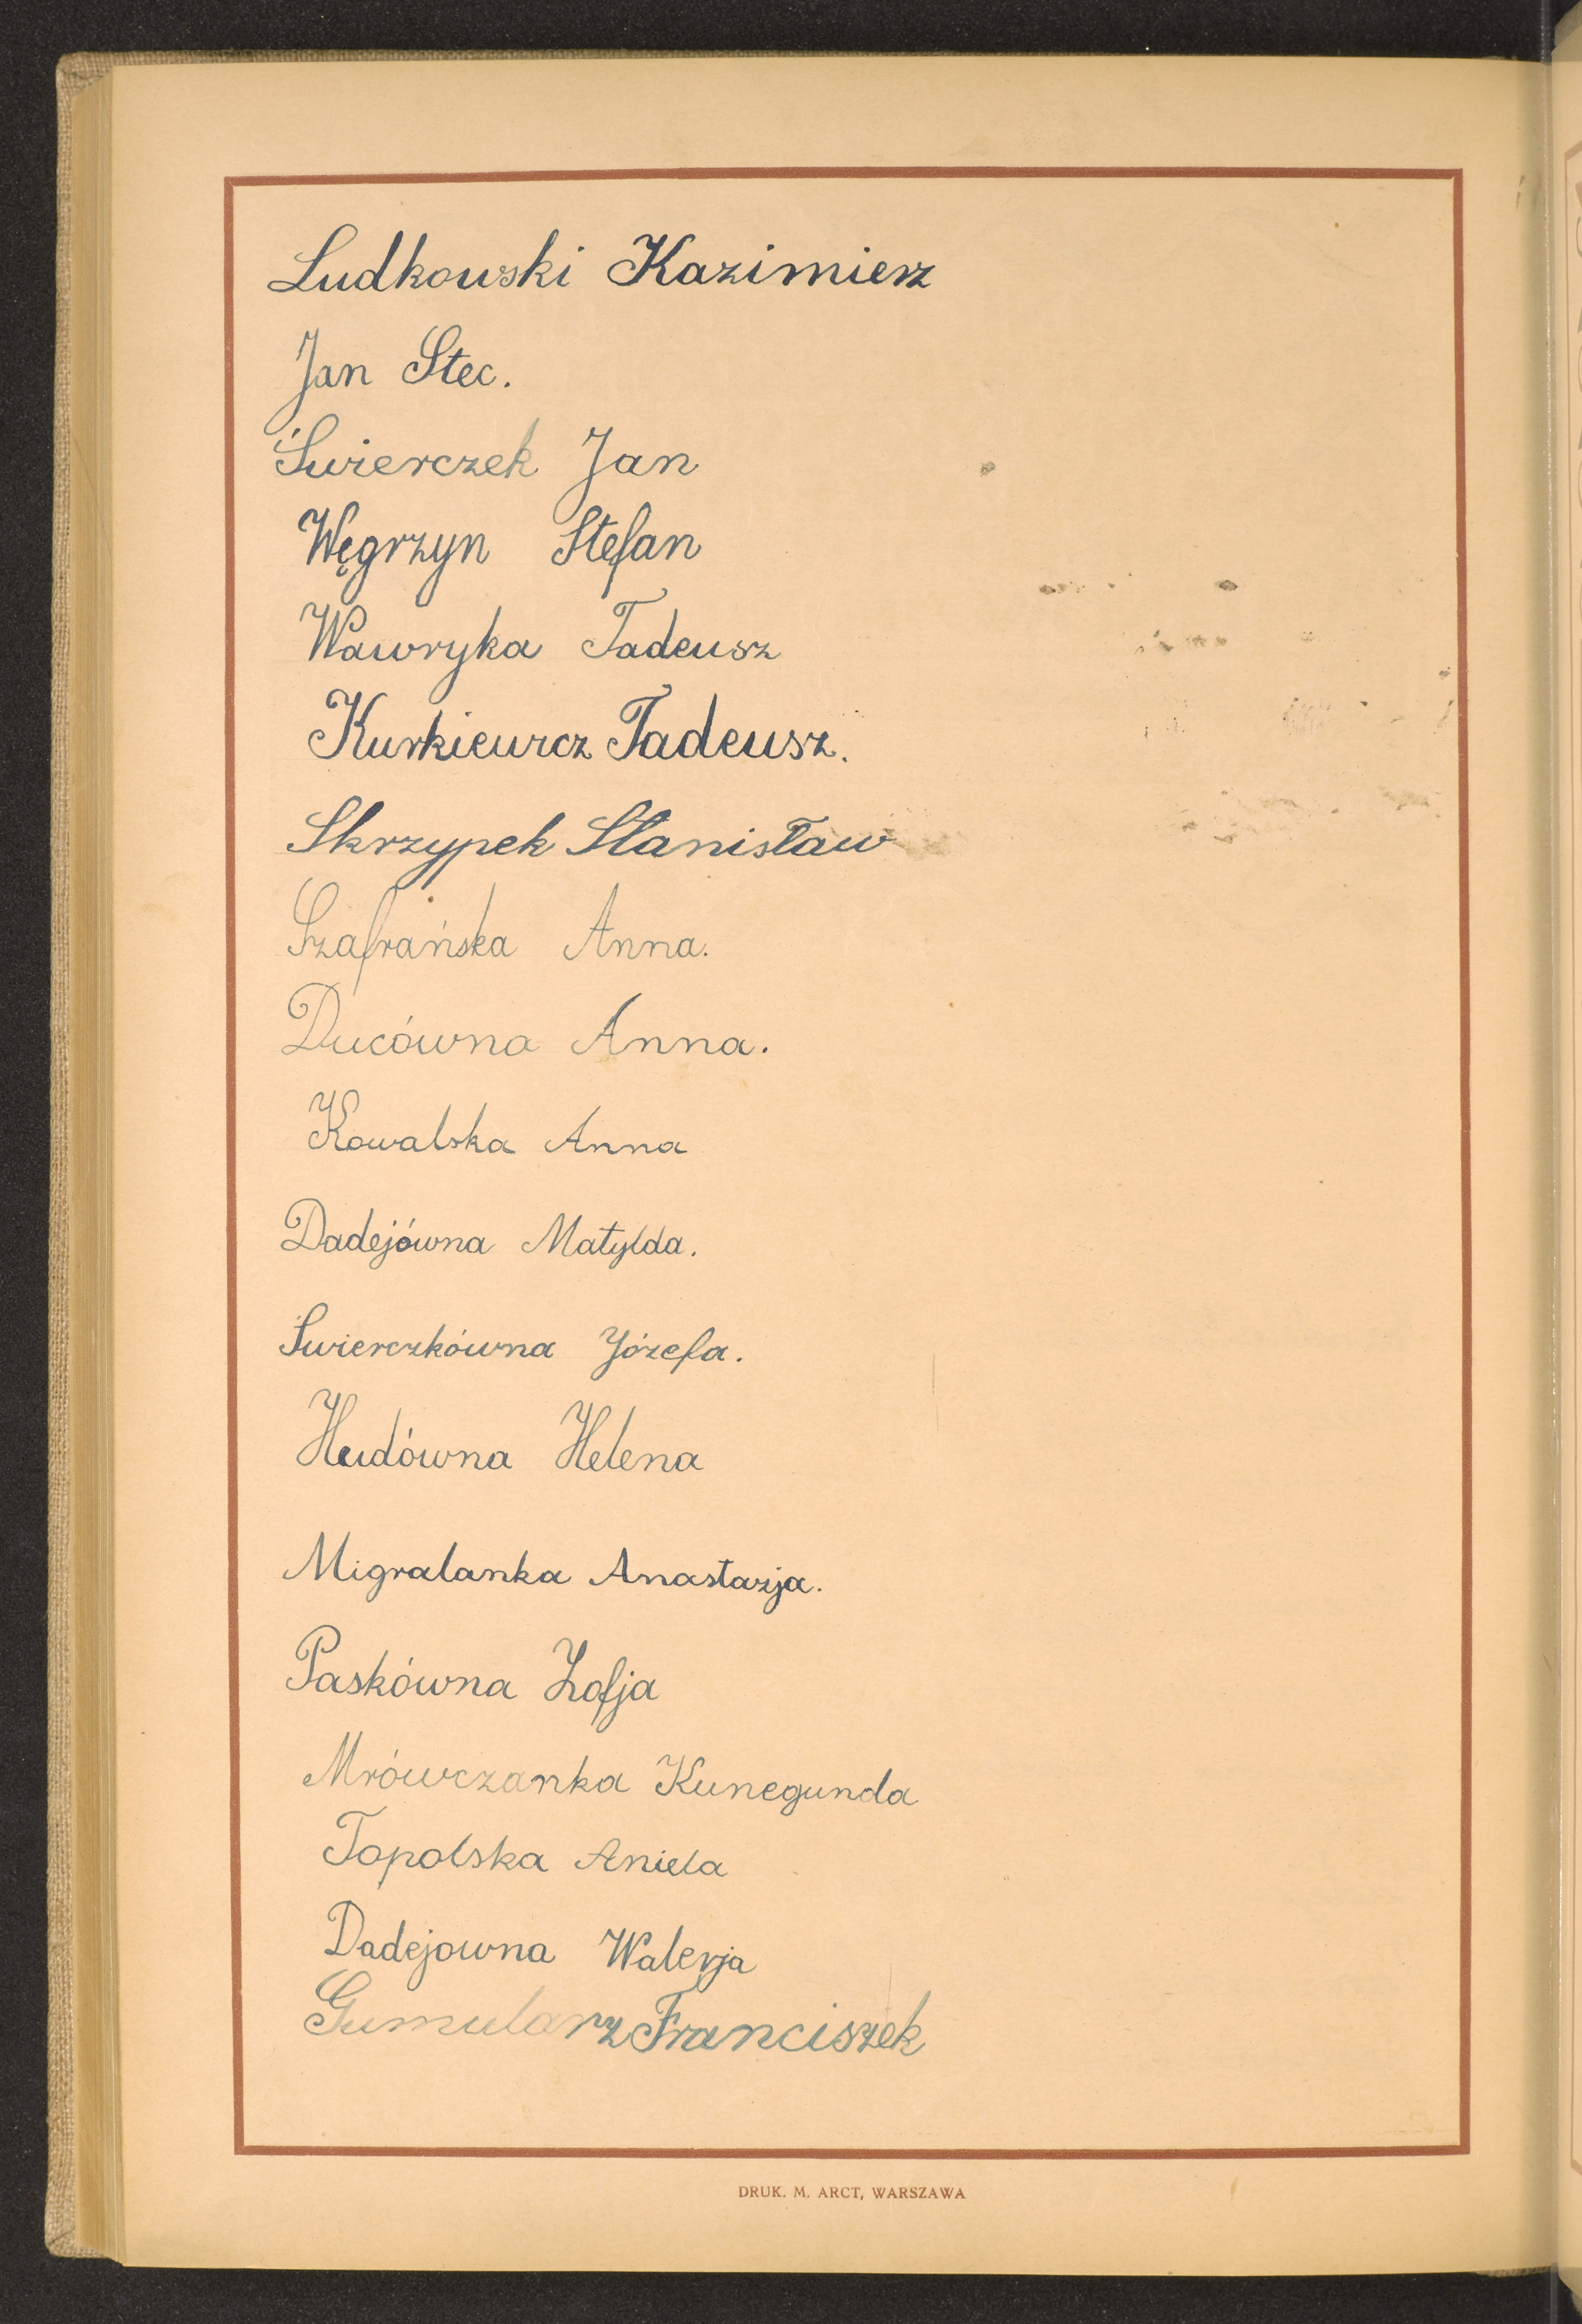 Ludkowski Kazimierz
Jan Stec.
Świerczek Jan
Węgrzyn Stefan
Wawryka Tadeusz
Kurkiewicz Tadeusz.
Skrzypek Stanisław
Szafrańska Anna.
Ducówna Anna.
Kowalska Anna
Dadejówna Matylda.
Świerczkówna Józefa.
Hudówna Helena
Migralanka Anastazja.
Paskówna Zofja
Mrówczanka Kunegunda
Topolska Aniela
Dadejowna Walerja
Gumularz Franciszek
DRUK. M. ARCT, WARSZAWA